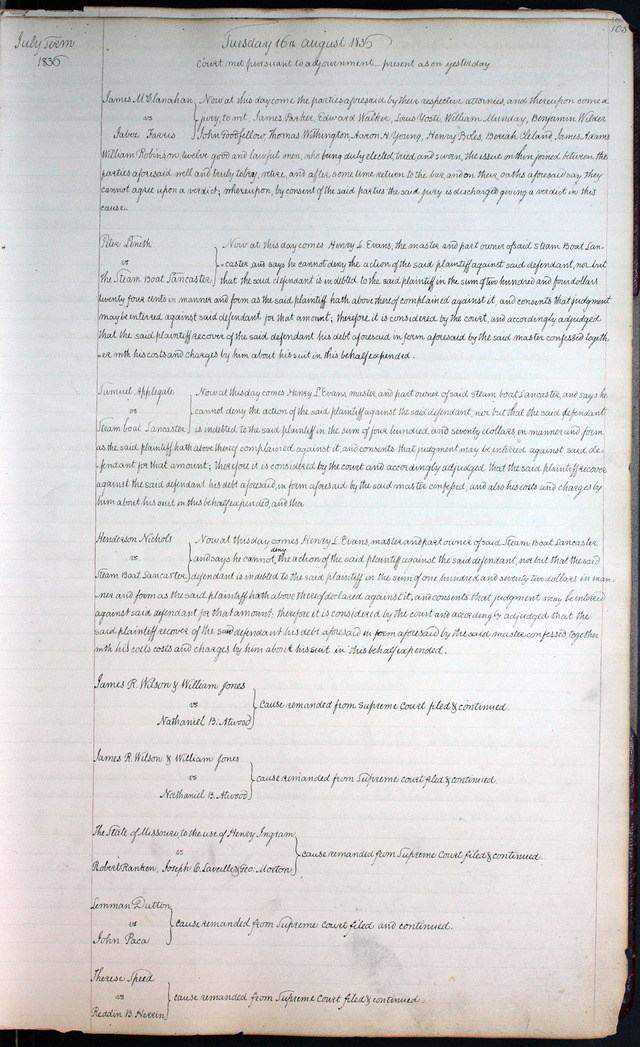 105
July Term
1836
Tuesday 16th August 1836
Court met pursuant to adjournment present as on yesterday
James McClanahan
vs
Jabez Farris
Now at this day come the parties aforesaid by their respective attornies, and thereupon come a
jury, to wit, James Parker, Edward Walker, Louis Yosti, William Munday, Benjamin Wilder
John Goodfellow, Thomas Withington, Aaron H. Young, Henry Boles, Beriah Cleland, James Adams
William Robinson twelve good and lawful men, who being duly elected, tried, and sworn, the issue on them joined between the
parties aforesaid well and truly to try, retire, and after some time return to the bar, and on their oaths aforesaid say, they
cannot agree upon a verdict; whereupon, by consent of the said parties the said jury is discharged giving a verdict in this
cause.
Peter Lineth
vs
the Steam Boat Lancaster
Now at this day comes Henry L. Evans, the master and part owner of said Steam Boat Lan-
caster, and says he cannot deny the action of the said plaintiff against said defendant, nor but
that the said defendant is indebted to the said plaintiff in the sum of two hundred and four dollars
twenty four cents in manner and form as the said plaintiff hath above thereof complained against it, and consents that judgment
may be entered against said defendant for that amount; therefore it is considered by the court, and accordingly adjudged
that the said plaintiff recover of the said defendant his debt aforesaid in form aforesaid by the said master confessed togeth
er with his costs and charges by him about his suit in this behalf expended.
Samuel Applegate
vs
Steam boat Lancaster
Now at this day comes Henry L Evans, master and part owner of said Steam boat Lancaster, and says he
cannot deny the action of the said plaintiff against the said defendant, nor but that the said defendant
is indebted to the said plaintiff in the sum of four hundred and seventy dollars in manner and form
as the said plaintiff hath above thereof complained against it, and consents that judgment may be entered against said de-
fendant for that amount; therefore it is considered by the court and accordingly adjudged that the said plaintiff recover
against the said defendant his debt aforesaid, in form aforesaid by the said master confessed, and also his costs and charges by
him about his suit in this behalf expended, and tha
Henderson Nichols
vs
Steam Boat Lancaster
Now at this day comes Henry L. Evans, master and part owner of said Steam Boat Lancaster
and says he cannot deny the action of the said plaintiff against the said defendant, nor but that the said
defendant is indebted to the said plaintiff in the sum of one hundred and seventy two dollars in man-
ner and form as the said plaintiff hath above thereof declared against it, and consents that judgment may be entered
against said defendant for that amount; therefore it is considered by the court and accordingly adjudged that the
said plaintiff recover of the said defendant his debt aforesaid in form aforesaid by the said master confessed together
with his costs costs and charges by him about his suit in this behalf expended.
James R. Wilson & William Jones
vs
Nathaniel B. Atwood
cause remanded from Supreme Court filed & continued.
James R. Wilson & William Jones
vs
Nathaniel B. Atwood
cause remanded from Supreme Court filed & continued.
The State of Missouri, to the use of Henry Ingram
vs
Robert Ranken, Joseph C. Laveille & Geo: Morton
cause remanded from Supreme Court filed & continued.
Lemman Dutton
vs
John Paca
cause remanded from Supreme Court filed and continued.
Therese Speed
vs
Reddin B. Herrin
cause remanded from Supreme Court filed & continued.